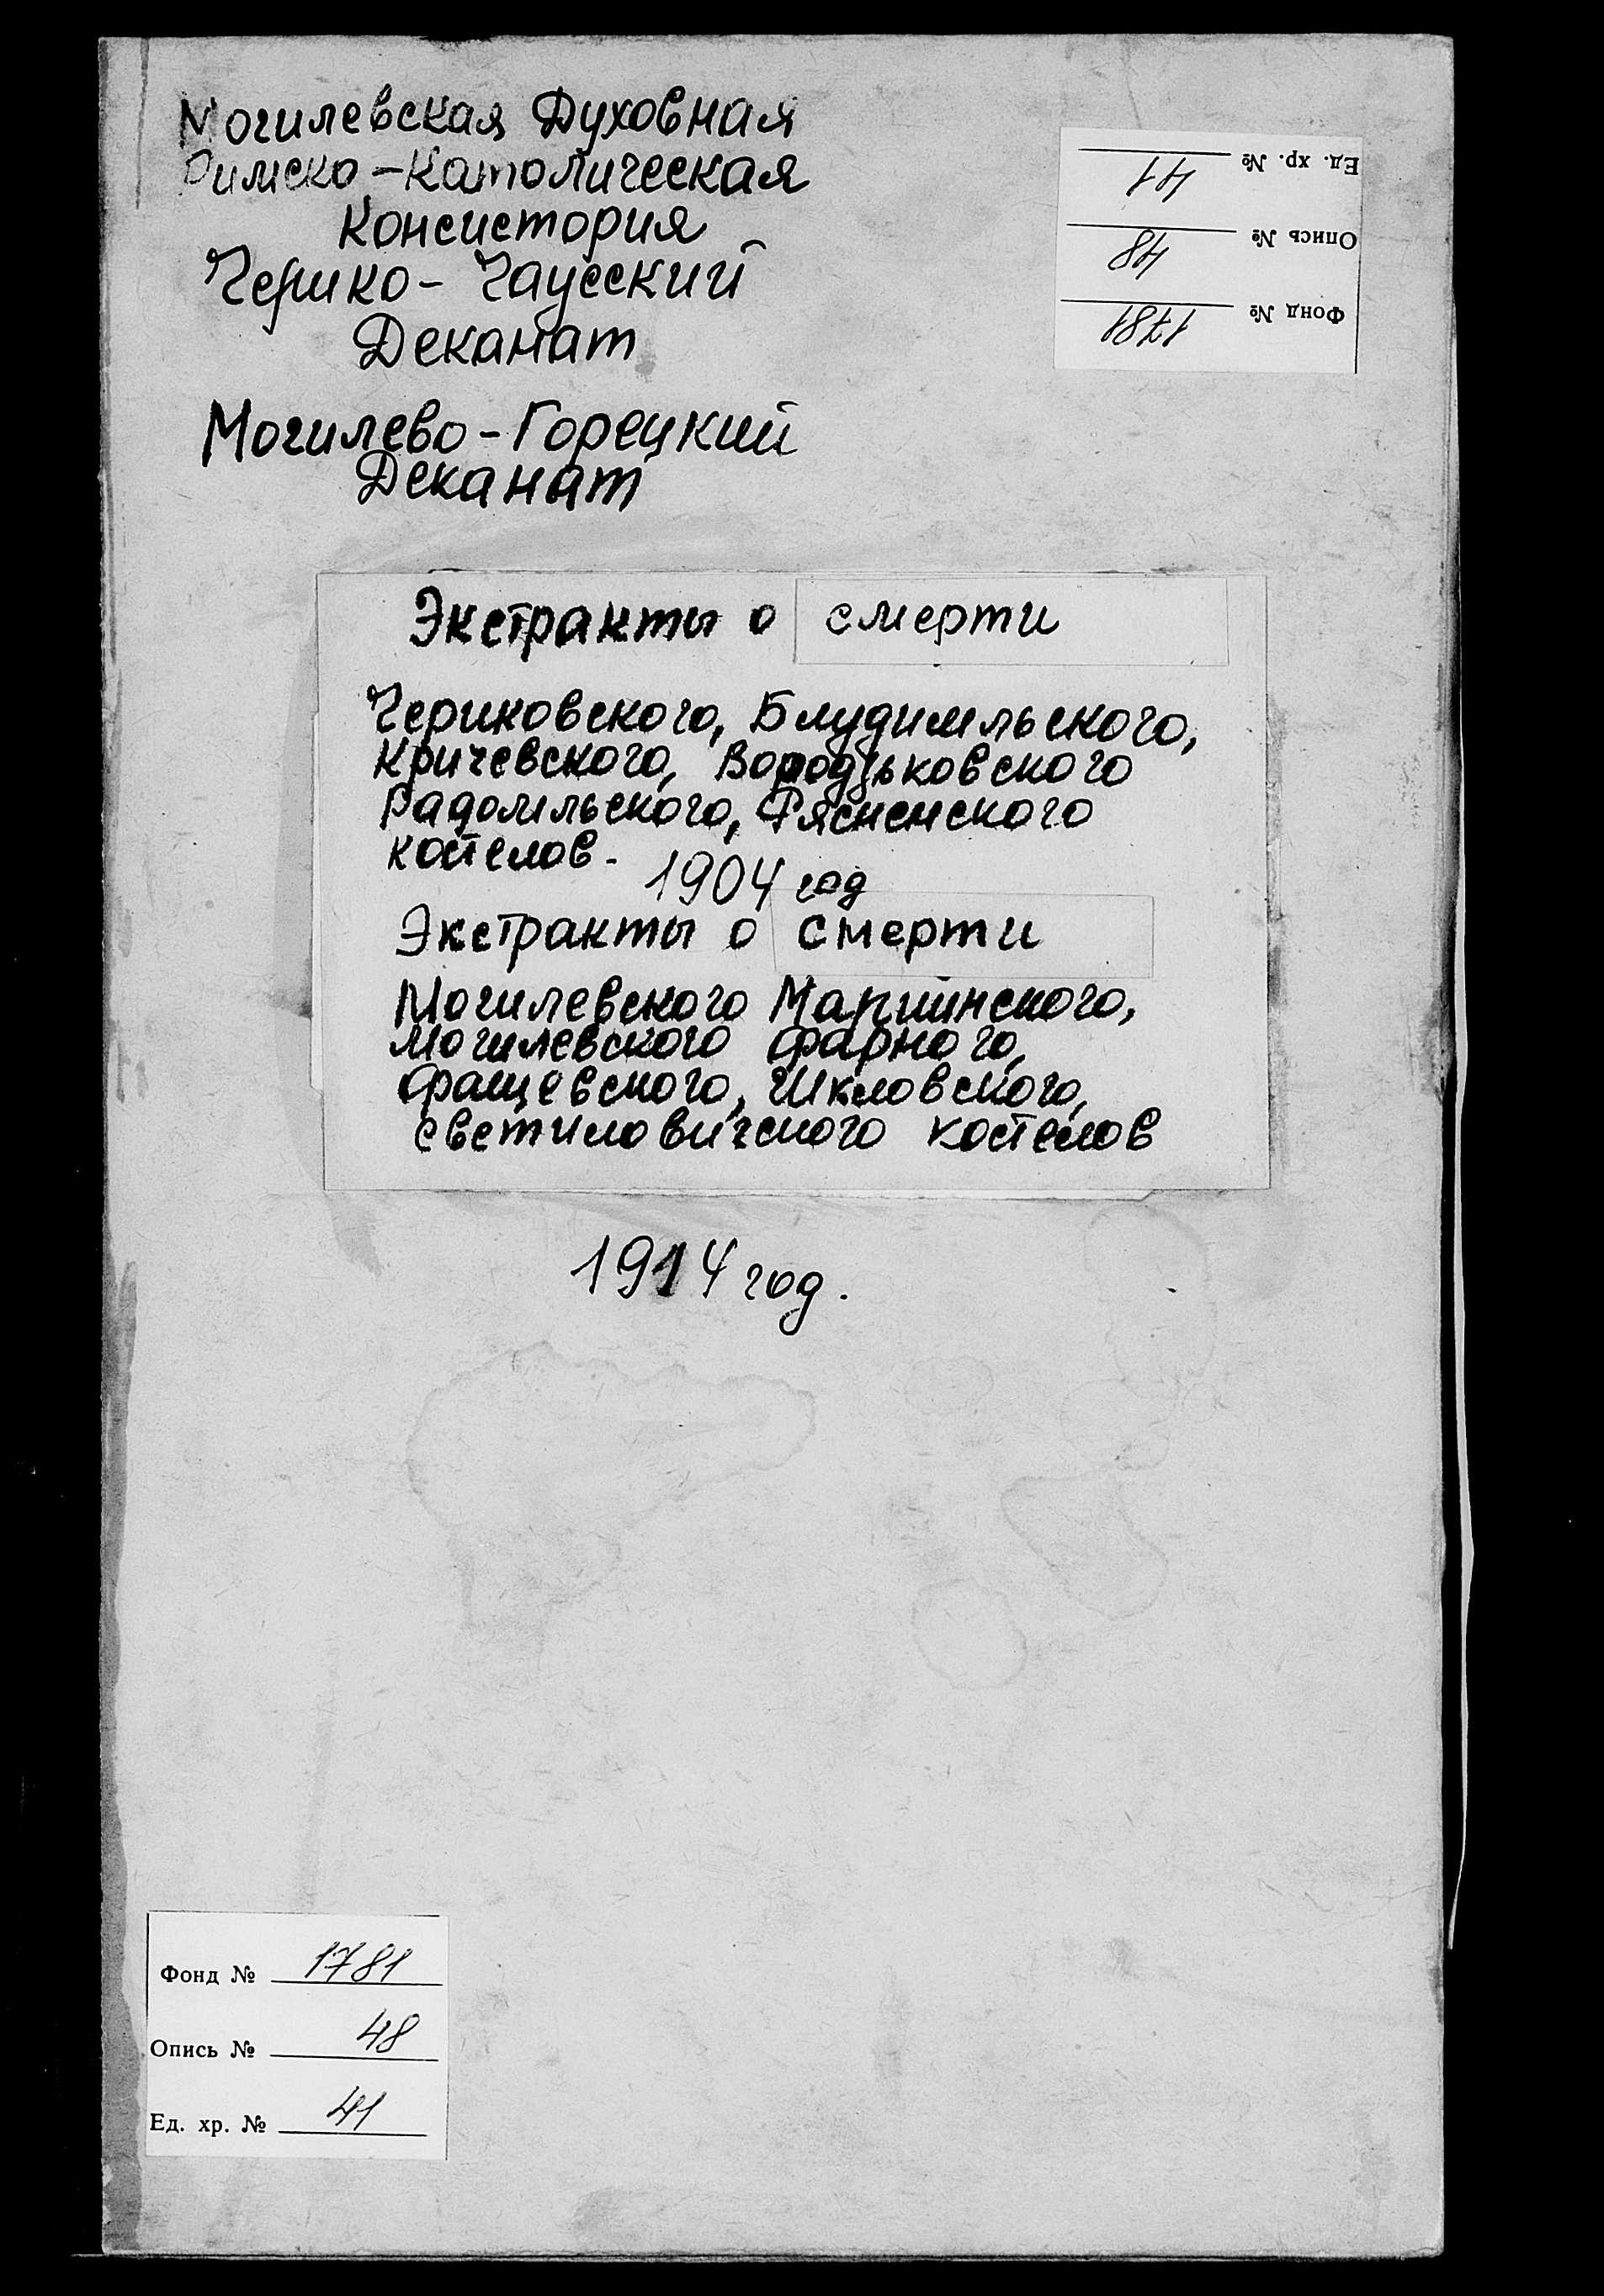 Могилевская Духовная
Римско-Католическая
Консистория
Черико-Чаусский
Деканат
Могилево-Горецкий
Деканат
Ед. хр. № 41
Опись № 48
Фонд № 1781
Экстракты о смерти
Чериковского,
Кричевского,
Радомльского, Рясненского
костелов.
1904 год
Экстракты о смерти
Могилевского Мариинского,
Могилевского фарного,
Фащевского, Шкловского,
Светиловичского костелов
1914 год.
Фонд № 1781
Опись № 48
Ед. хр. № 41